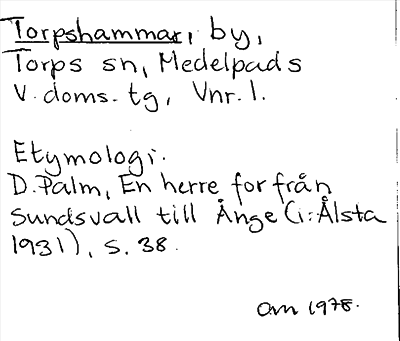 Torpshammar, by,
Torps sn, Medelpads
V. doms. tg, Vnr. 1.
Etymologi.
D. Palm, En herre for från
Sundsvall till Ånge (i: Ålsta
1931), s. 38.
Om 1978.